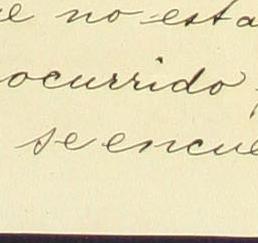 e no esta
ocurrido
se encue